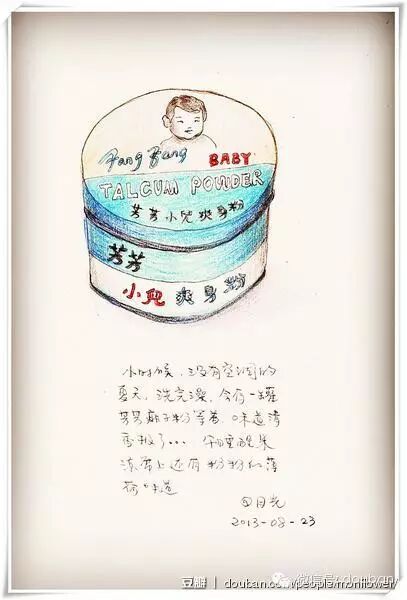 Fang Fang BABY
TALCUM POWDER
芳芳小兒爽身粉
芳芳
小兒爽身粉
小时候,没有空调的
夏天,洗完澡,会有一罐
芳芳痱子粉等着,味道清
香极了... 午睡醒来
凉席上还有粉粉的薄
荷味道
田月光
2013-08-23
豆瓣 douban.com/people/monflower/
微信号: douban